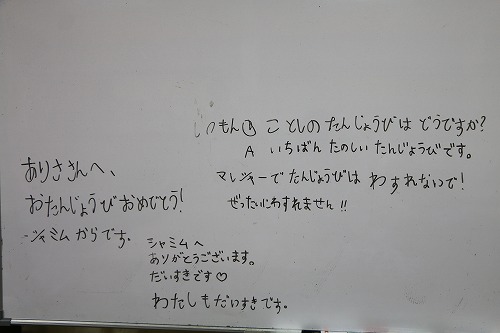 ありささんへ、
おたんじょうびおめでとう!
ジャミムからです。
しつもん① ことしのたんじょうびはどうですか?
A いちばんたのしいたんじょうびです。
マレーシャーでたんじょうびはわすれないで!
ぜったいにわすれません!!
シャミムへ
ありがとうございます。
だいすきです♡
わたしもだいすきです。